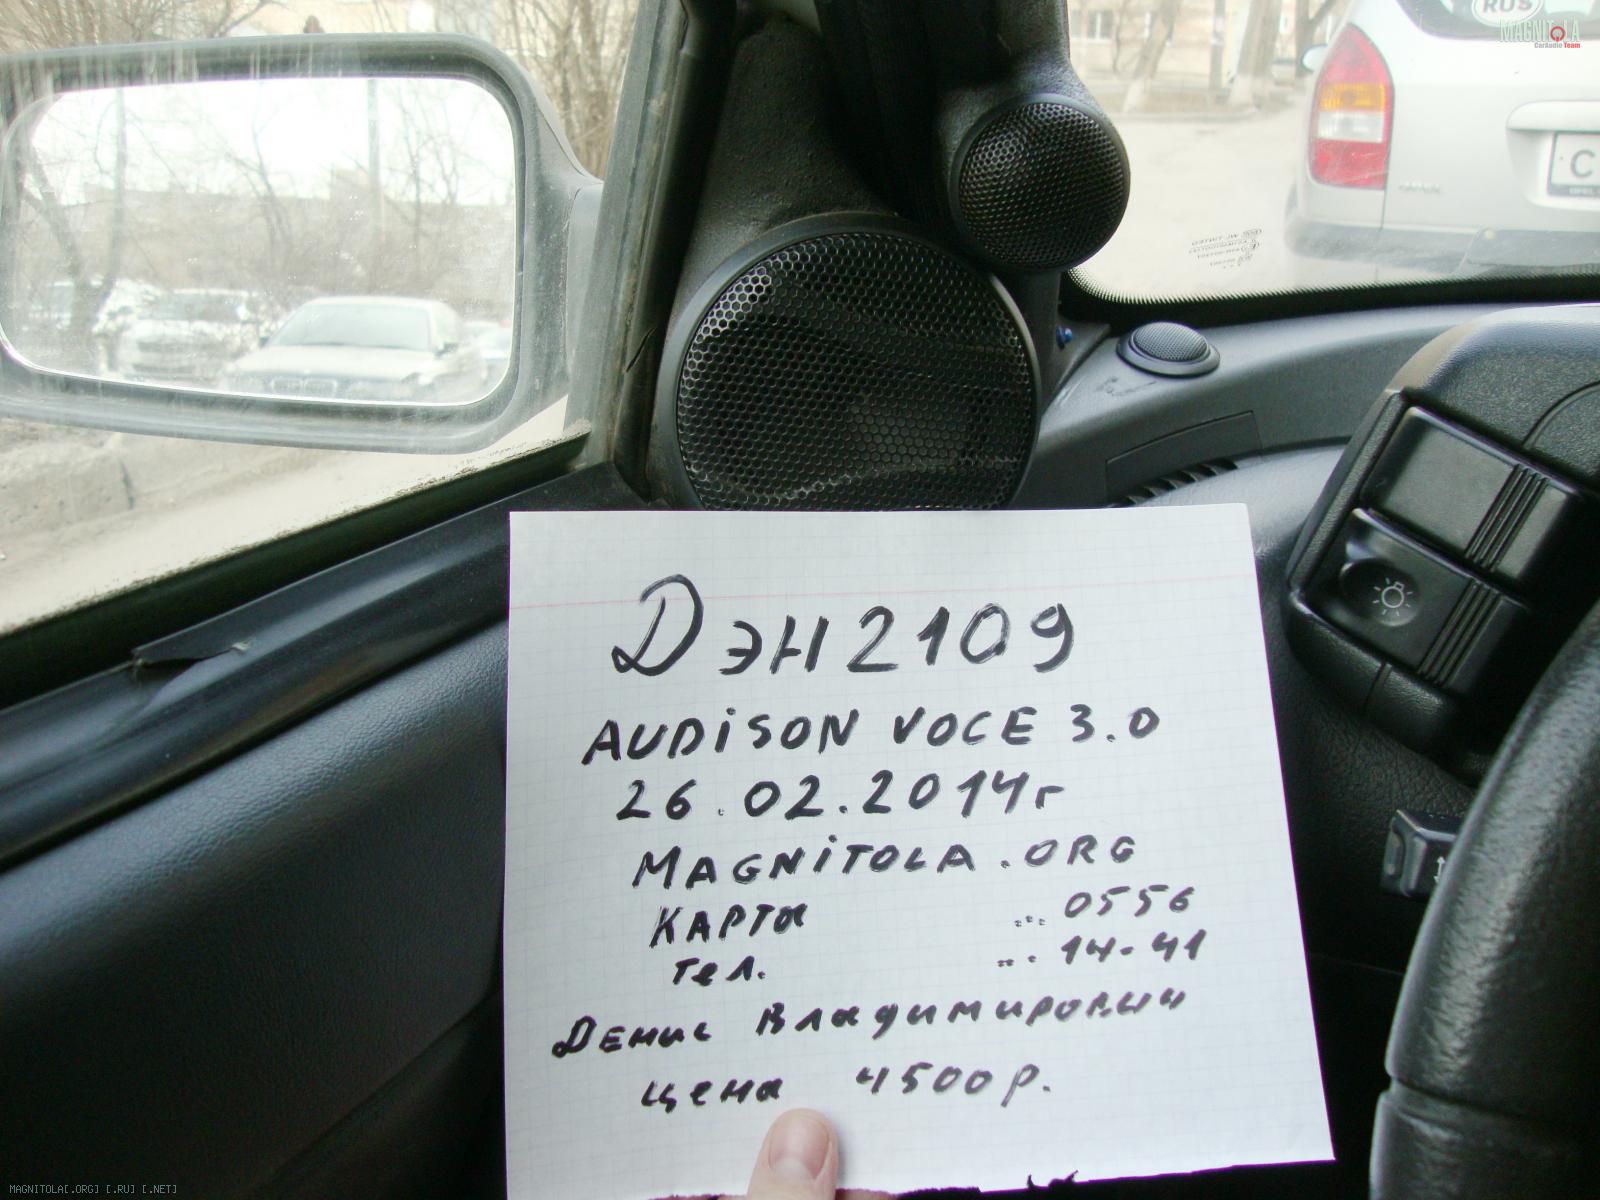 RUS
MAGNITOLA
CarAudio Team
С
Дэн2109
AUDiSON VOCE 3.0
26.02.2014г
MAGNiTOLA.ORG
КАРТа ... 0556
тел. ... 14-41
Денис Владимирович
цена 4500р.
MAGNITOLA[.ORG] [.RU] [.NET]